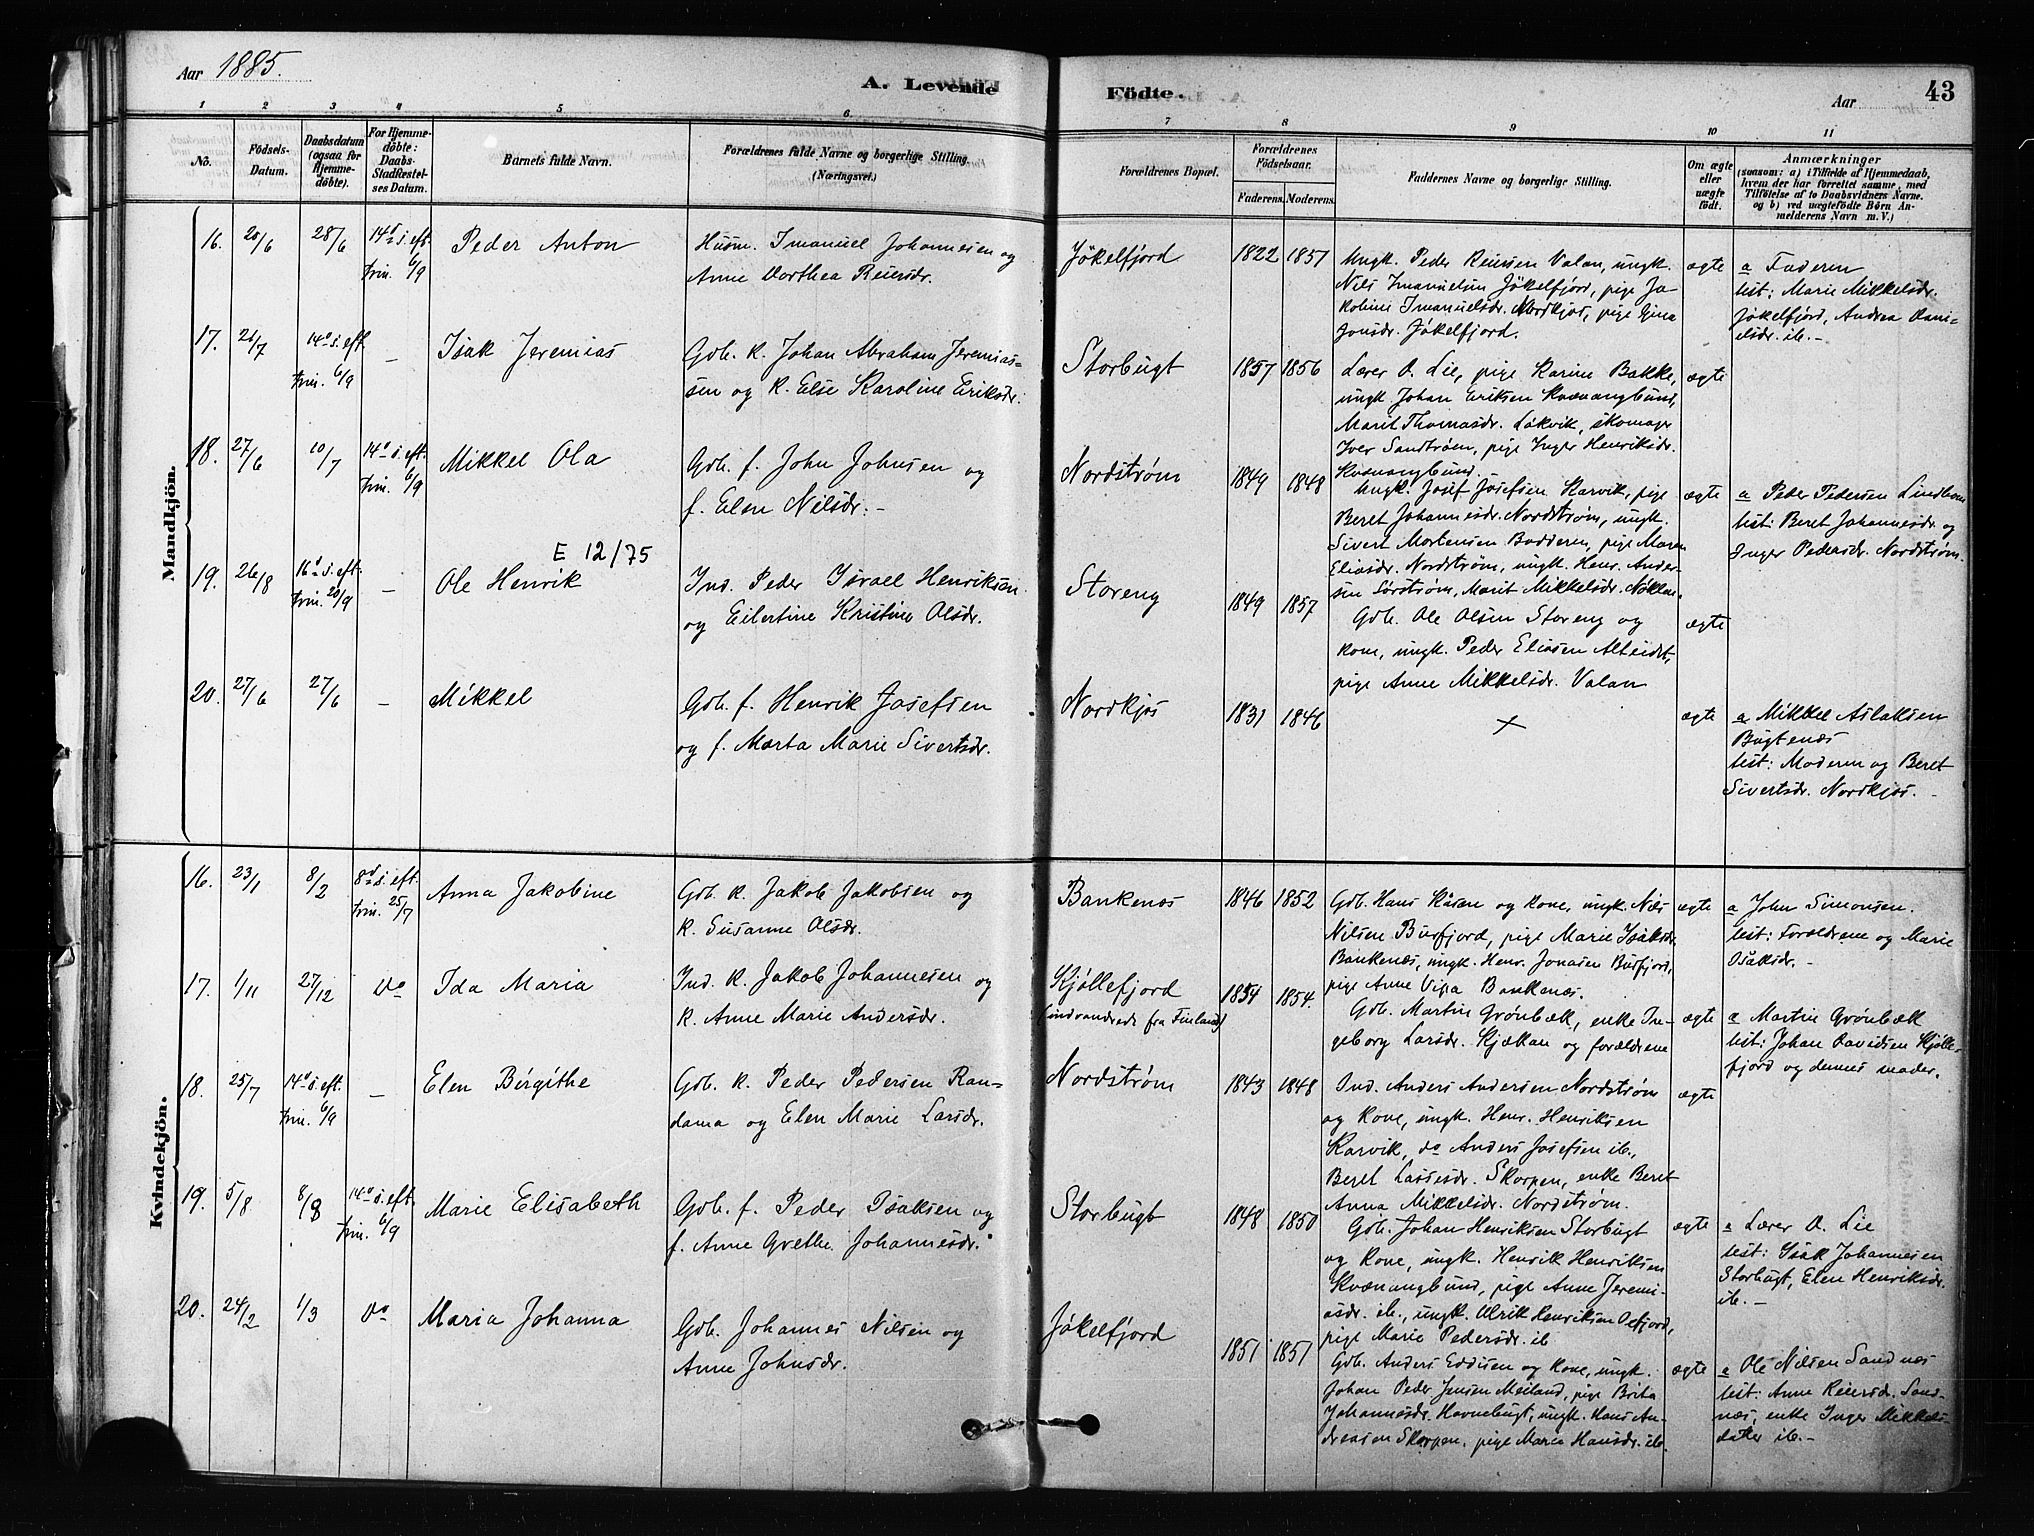 Aar 1885.
A. Levende
Födte.
Aar
43
1 2 3 4 5 6 7 8 9 10 11
No.
Födsels-
Datum.
Daabsdatum
(ogsaa for
Hjemme-
döbte).
For Hjemme-
döbte:
Daabs-
Stadfæstel-
ses Datum.
Barnets fulde Navn.
Forældrenes fulde Navne og borgerlige Stilling.
(Næringsvei.)
Forældrenes Bopæl.
Forældrenes
Födselsaar.
Faderens. Moderens.
Faddernes Navne og borgerlige Stilling.
Om ægte
eller
uægte
födt.
Anmærkninger
(saasom: a) i Tilfælde af Hjemmedaab,
hvem der har forrettet samme, med
Tilföielse af to Daabsvidners Navne.
og b) ved uægtefödte Börn An-
melderens Navn m. V.)
Mandkjön.
16. 20/6 28/6 14d s. eft.
trin. 6/9
Peder Anton
Husm. Imanuel Johannesen og
Anne Dorthea Reiersdr.
Jøkelfjord
1822 1857
Ungk. Peder Reiersen Valan, ungk.
Nils Imanuelsen Jøkelfjord, pige Ja-
kobine Imanuelsdr. Nordkjos, pige Gjina
Jonsdr. Jøkelfjord.
ægte
a Faderen
test: Marie Mikkelsdr.
Jøkelfjord, Andrea Dani-
elsdr. ib. -
17. 26/7 14d s. eft
trin. 6/9
-
Isak Jeremias
Gdb. k. Johan Abraham Jeremias-
sen og k. Else Karoline Eriksdr.
Storbugt
1857 1856
Lærer O. Lie, pige Karine Bakke,
ungk. Johan Eriksen Kvænangbund,
Marit Thomasdr. Låkvik, skomager
Iver Sandtrøen, pige Inger Henriksdr.
Kvænangbund.
ægte
18. 27/6 10/7 14d s. eft.
trin. 6/9
Mikkel Ola
Gdb. f. John Johnsen og
f. Elen Nilsdr. -
Nordstrøm
1849 1848
Ungk. Josef Josefsen Karvik, pige
Beret Johannesdr. Nordstrøm, ungk.
Sivert Mortensen Badderen, pige Maren
Eliasdr. Nordstrøm, ungk. Henr. Ander-
sen Sørstrøm, Marit Mikkelsdr. Nøklan.
ægte
a Peder Pedersen Lindbom
test: Beret Johannesdr. og
Inger Pedersdr. Nordstrøm.
E 12/75
19. 26/8 16d s. eft.
trin. 20/9
-
Ole Henrik
Ind. Peder Israel Henriksen
og Eilertine Kristine Olsdr.
Storeng
1849 1857
Gdb. Ole Olsen Storeng og
kone, ungk. Peder Eliasen Alteidet,
pige Anne Mikkelsdr. Valan
ægte
20. 27/6 27/6 -
Mikkel
Gdb. f. Henrik Josefsen
og f. Marta Marie Sivertsdr.
Nordkjos
1831 1846
ægte
a Mikkel Aslaksen
Bugtenæs
test: Moderen og Beret
Sivertsdr. Nordkjos. -
Kvindekjön.
16. 23/1 8/2 8d s. eft.
trin. 25/7
Anna Jakobine
Gdb. k. Jakob Jakobsen og
k. Susanne Olsdr.
Bankenæs
1846 1852
Gdb. Hans Kåsen og kone, ungk. Nils
Nilsen Burfjord, pige Marie Isaksdr.
Bankenæs, ungk. Henr. Jonasen Burfjord,
pige Anne Vipa Bankenæs.
ægte
a John Simonsen.
test: Forældrene og Marie
Isaksdr. -
17. 1/11 27/12 Do
Ida Maria
Ind. k. Jakob Johannesen og
k. Anne Marie Andersdr.
Kjøllefjord
(indvandrede fra Finland)
1854 1854.
Gdb. Martin Grønbæk, enke In-
geborg Larsdr. Kjækan og forældrene
ægte
a Martin Grønbæk
test: Johan Davidsen Kjølle-
fjord og dennes moder.
18. 25/7 14d s. eft.
trin. 6/9
-
Elen Birgithe
Gdb. k. Peder Pedersen Ran-
dama og Elen Marie Larsdr.
Nordstrøm
1843 1848
Ind. Anders Andersen Nordstrøm
og kone, ungk. Henr. Henriksen
Karvik, do Anders Josefsen ib.,
Beret Lassesdr. Skorpen, enke Beret
Anna Mikkelsdr. Nordstrøm.
ægte
19. 5/8 8/8 14d s. eft.
trin. 6/9
Marie Elisabeth
Gdb. f. Peder Isaksen og
f. Anne Grethe Johannesdr.
Storbugt
1848 1850
Gdb. Johan Henriksen Storbugt
og kone, ungk. Henrik Henriksen
Kvænangbund, pige Anne Jeremi-
asdr. ib., ungk. Ulrik Henriksen Oxfjord,
pige Marie Pedersdr. ib
ægte
a Lærer O. Lie
test: Isak Johannesen
Storbugt, Elen Henriksdr.
ib. -
20. 24/2 1/3 Do
Maria Johanna
Gdb. Johannes Nilsen og
Anne Johnsdr.
Jøkelfjord
1851 1851
Gdb. Anders Eddisen og kone, ungk.
Johan Peder Jensen Meiland, pige Brita
Johannesdr. Havnebugt, ungk. Hans An-
dreasen Skorpen, pige Maria Hansdr. ib.
ægte
a Ole Nilsen Sandnæs
test: Anne Reiersdr. Sand-
næs, enke Inger Mikkels-
datter ib. -